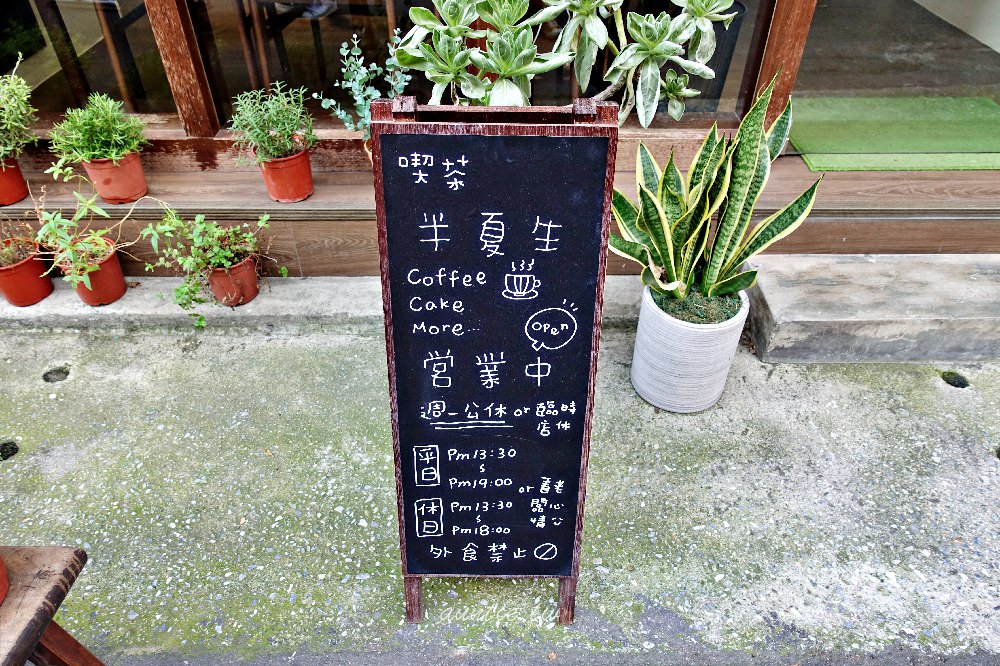 喫茶
半夏生
Coffee
Cake
More...
open
営業中
週一公休 or 臨時
店休
平日 Pm 13:30
~
Pm 19:00
休日 Pm 13:30
~
Pm 18:00
or 看老
闆心
情公
外食禁止